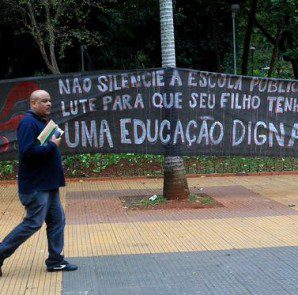 NÃO SILENCIE A ESCOLA PÚBLIC
LUTE PARA QUE SEU FILHO TENH
UMA EDUCAÇÃO DIGNA